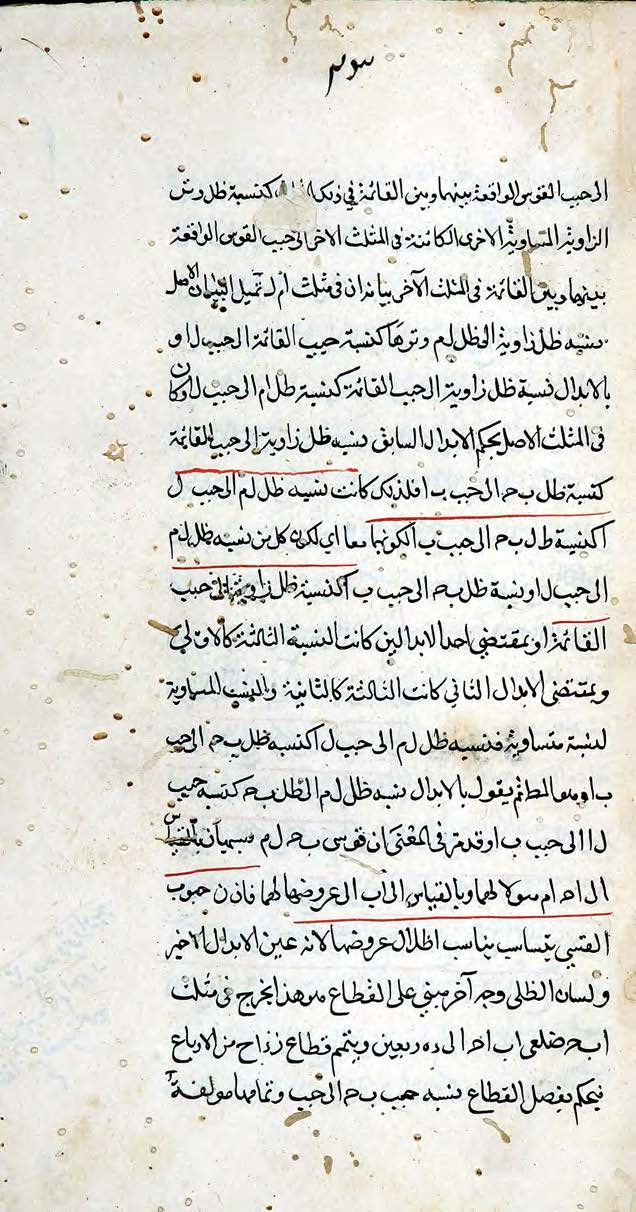 الى جيب القوس الواقعة بينها وبين القائمة في ذلك كنسبة ظل وتر
الزاوية المساوية الاخرى الكائنة فى المثلث الاخر الى جيب القوس الواقعة
بينها وبين القائمة فى المثلث الآخر بيانه ان فى مثلث ام ل تميل البيان الاصل
نسبه ظل زاوية ا الى ظل ل م وترها كنسبة جيب القائمة الى جيب ل ا و
بالابدال نسبة ظل زاوية الى جيب القائمة كنسبة ظل ل م الى جيب ل ا وكان
فى المثلث الاصل بحكم الابدال السابق نسبه ظل زاوية ا الى جيب القائمة
كنسبة ظل ب حـ الى جيب ب ا فلذلك كانت نسبه ظل ل م الى جيب ل
ا كنسبة ظل ب حـ الى جيب ب ا لكونها معا اي لكون كل من نسبه ظل ل م
الى جيب ل ا و نسبة ظل ب حـ الى جيب ب ا كنسبة ظل زاوية الى جيب
القائمة او بمقتضى احد الابدالين كانت النسبة الثالثة كالاولى
وبمقتضى الابدال الثاني كانت الثالثة كالثانية والنسب المساوية
لنسبة متساوية فنسبه ظل ل م الى جيب ل ا كنسبه ظل ب حـ الى جيب
ب ا وهو المط ثم يقول بالابدال نسبه ظل ل م الى ظل ب حـ كنسبه جيب
ل ا الى جيب ب ا وقد مر فى المغنى ان قوس ب حـ ل م يسميان بالقياس
الى ا حـ ام ميولا لهما وبالقياس الى اب ال عروضها لهما فاذن جيوب
القسي يتناسب اظلال عروضها لانه عين الابدال الاخير
ولبيان الظلى وجه آخر مبني على القطاع هو هذا يخرج فى مثلث
اب حـ ضلعى اب ا حـ الى ده ربعين ويتمم قطاع من الارباع
فبحكم تفصيل القطاع نسبه جيب ب حـ الى جيب وتمامها مولفة